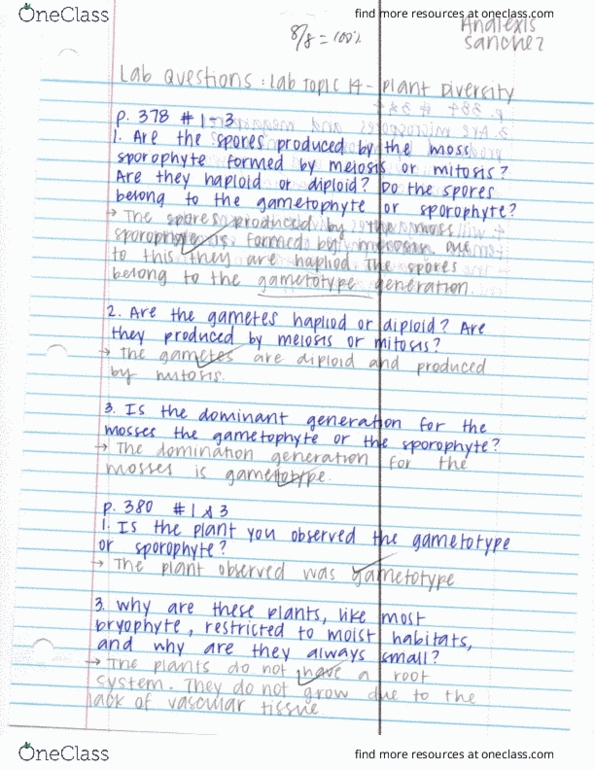 OneClass
find more resources at oneclass.com
8/8 = 100%
Analexis
Sanchez
Lab Questions: Lab Topic 14 - Plant Diversity
p. 378 #1-3
1. Are the spores produced by the moss
sporophyte formed by meiosis or mitosis?
Are they haploid or diploid? Do the spores
belong to the gametophyte or sporophyte?
→ The spores produced by the moss
sporophyte is formed by meiosis. Due
to this they are hapliod. The spores
belong to the gametotype generation.
2. Are the gametes hapliod or diploid? Are
they produced by meiosis or mitosis?
→ The gametes are diploid and produced
by mitosis.
3. Is the dominant generation for the
mosses the gametophyte or the sporophyte?
→ The domination generation for the
mosses is gametotype.
p. 380 #1 & 3
1. Is the plant you observed the gametotype
or sporophyte?
→ The plant observed was gametotype
3. Why are these plants, like most
bryophyte, restricted to moist habitats,
and why are they always small?
→ The plants do not have a root
system. They do not grow due to the
lack of vascular tissue
OneClass
find more resources at oneclass.com